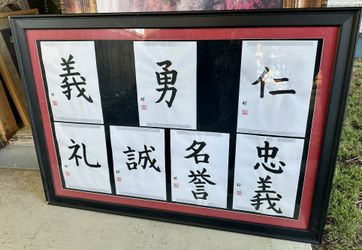 義
勇
仁
礼
誠
名誉
忠義